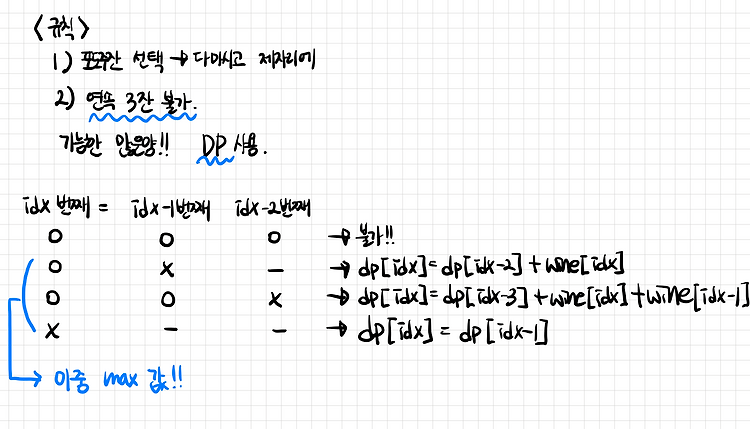 <규칙>
1) 포도잔 선택 → 다마시고 제자리에
2) 연속 3잔 불가.
가능한 많은양!! DP 사용.
idx 번째 = idx-1번째 idx-2번째
O O O → 불가!!
O X - → dp[idx] = dp[idx-2] + wine[idx]
O O X → dp[idx] = dp[idx-3] + wine[idx] + wine[idx-1]
X - - → dp[idx] = dp[idx-1]
→ 이중 max 값!!